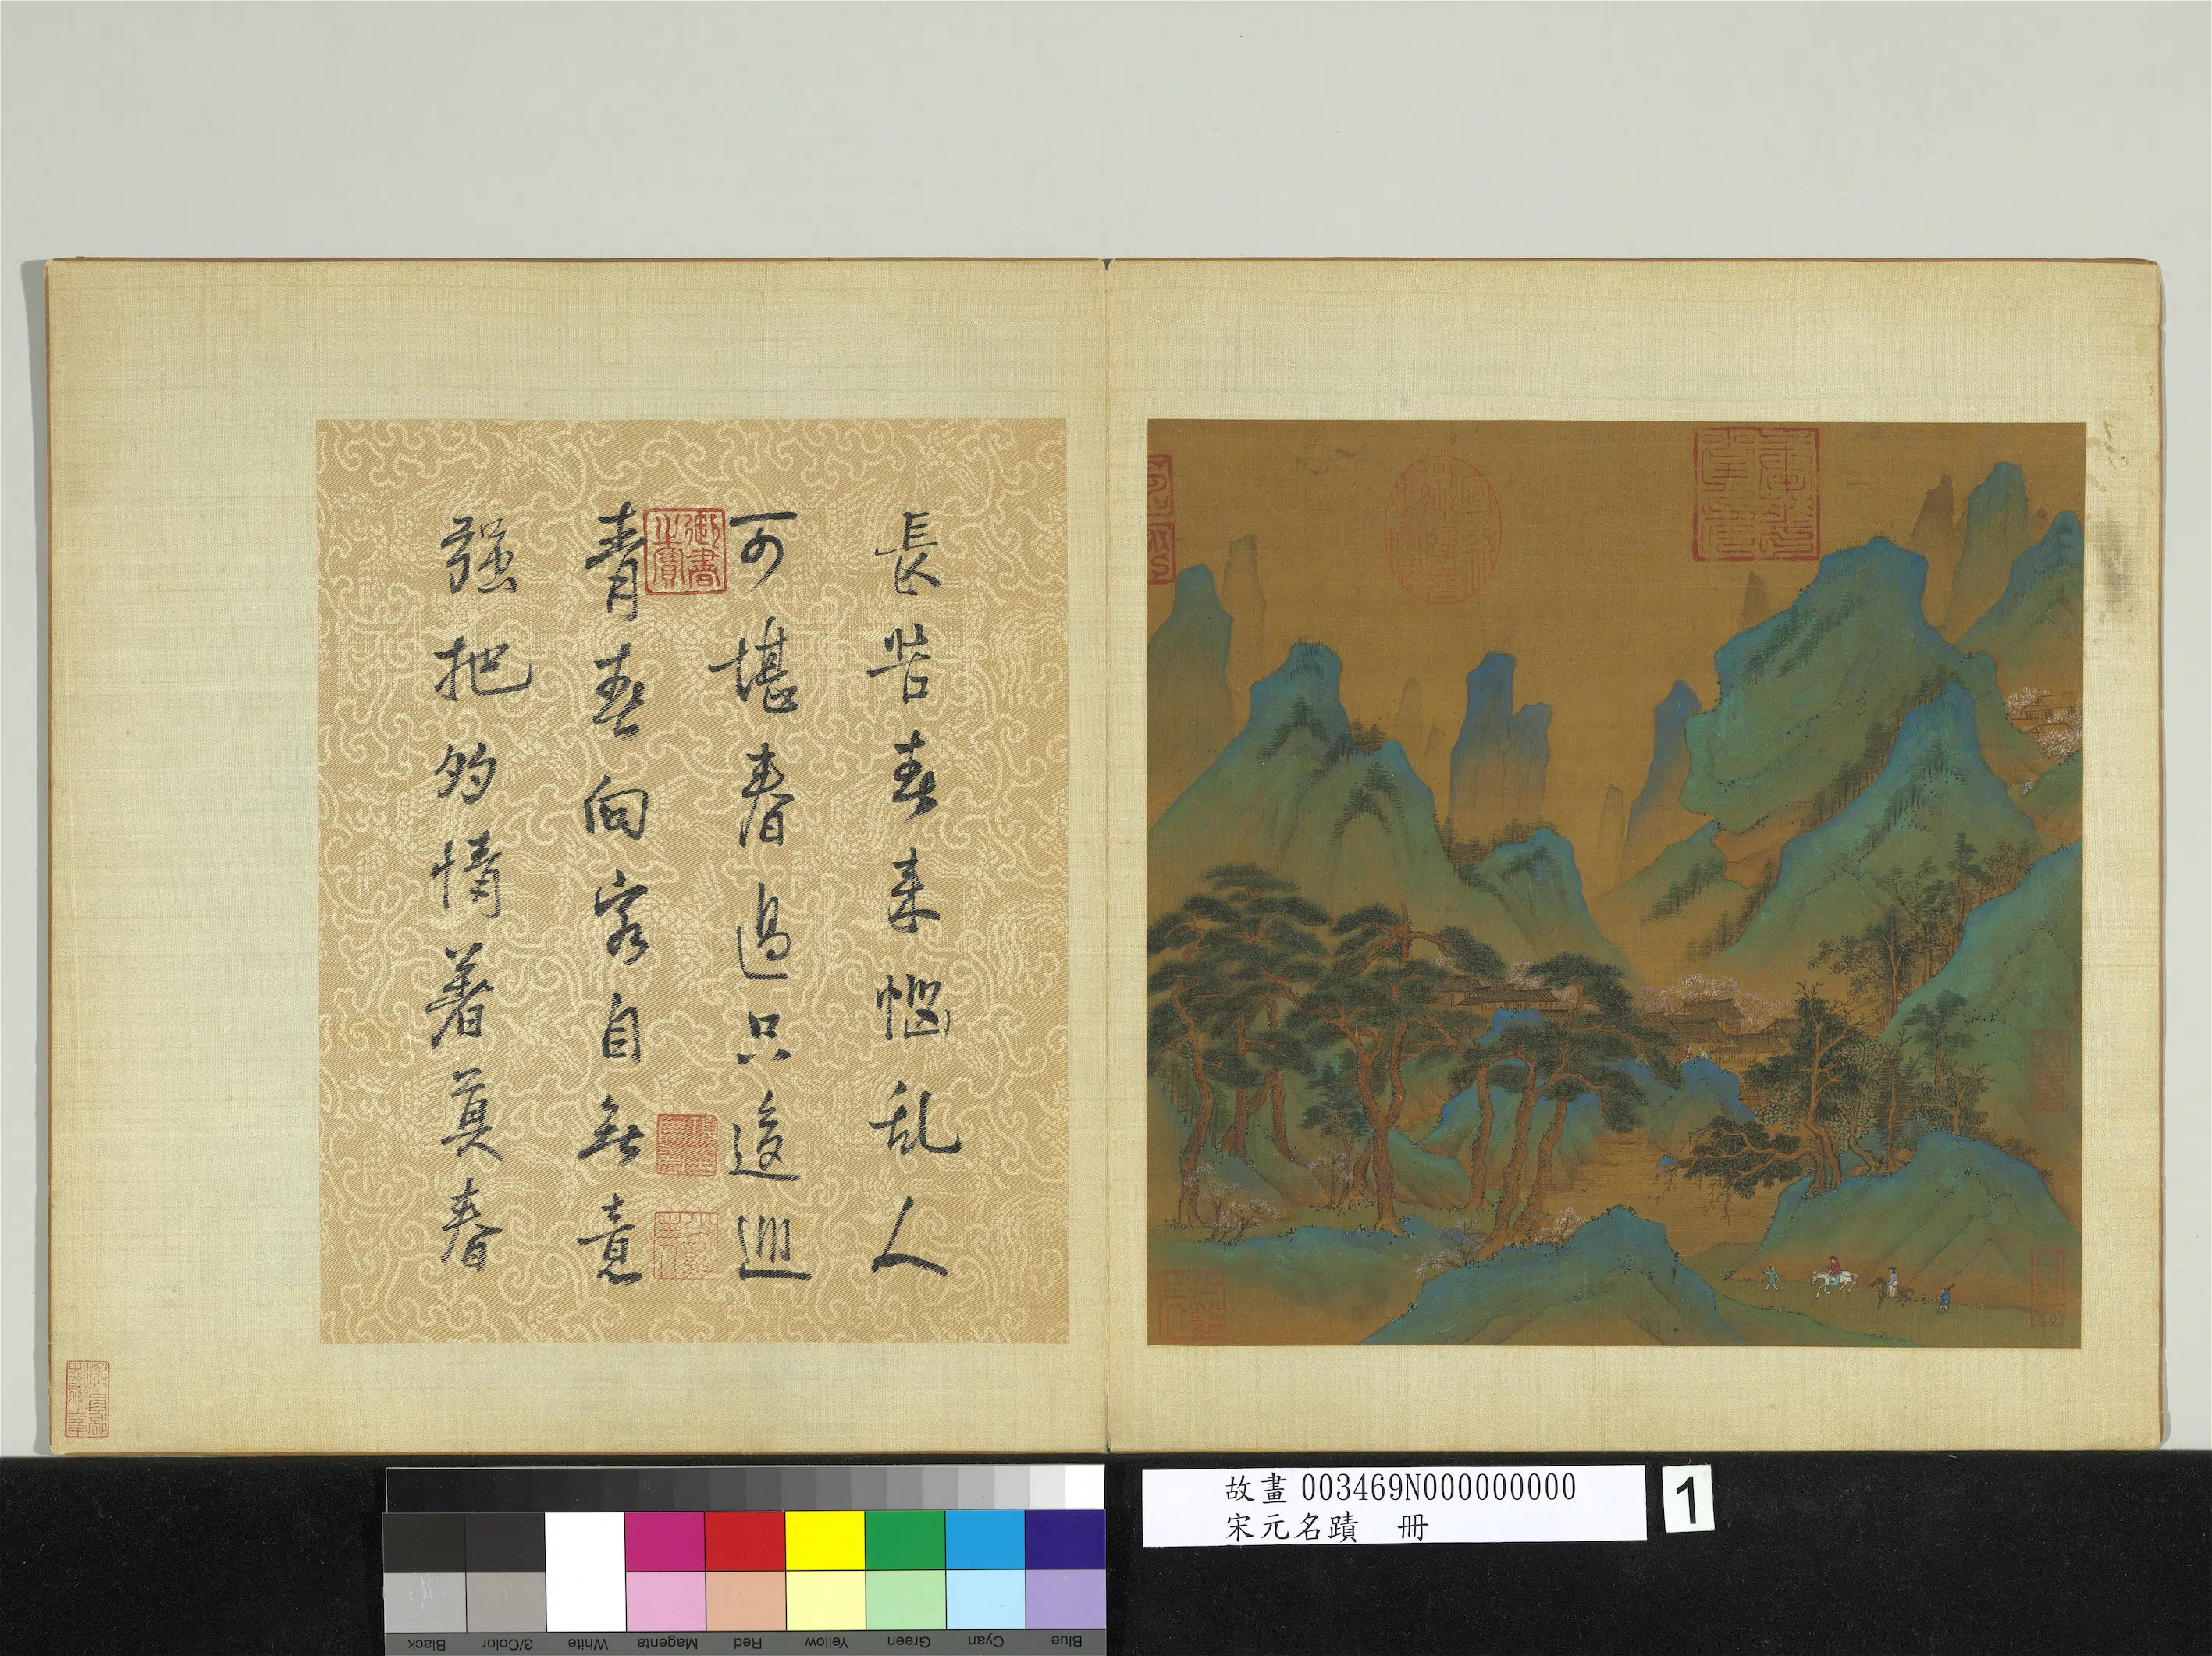 長苦春来惱乱人
可堪春過只逡巡
青春向客自無意
强把多情著莫春
御書之寶
故畫 003469N000000000
宋元名蹟 冊
1
Black
3/Color
White
Magenta
Red
Yellow
Green
Cyan
Blue